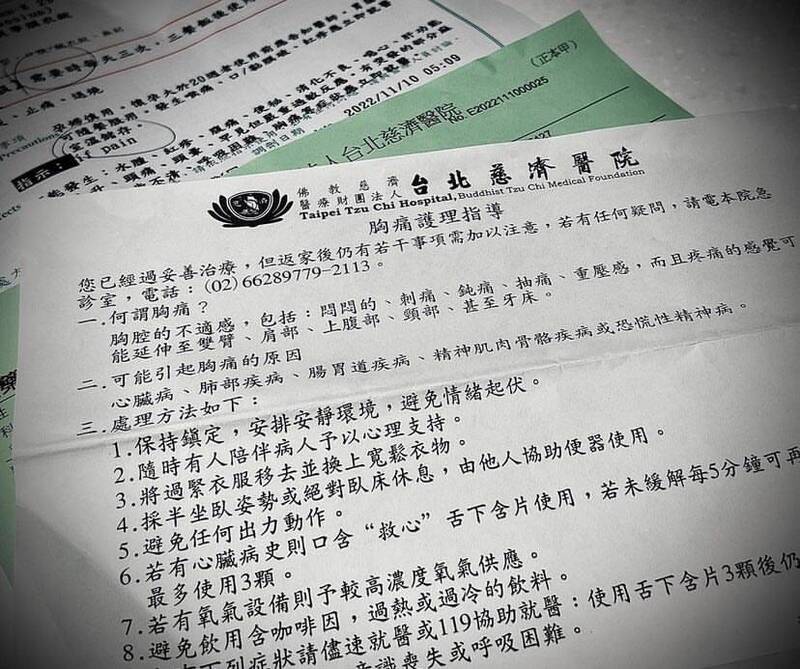 需要時每天三次，三餐飯後使用
止痛、退燒
2022/11/10 05:09
指示：
If Pain
室溫儲存。
(正本甲)
人台北慈濟醫院
No. E2022111000025
佛教慈濟
醫療財團法人 台北慈濟醫院
Taipei Tzu Chi Hospital, Buddhist Tzu Chi Medical Foundation
胸痛護理指導
您已經過妥善治療，但返家後仍有若干事項需加以注意，若有任何疑問，請電本院急
診室，電話：(02)66289779-2113。
一.何謂胸痛？
胸腔的不適感，包括：悶悶的、刺痛、鈍痛、抽痛、重壓感，而且疼痛的感覺可
能延伸至雙臂、肩部、上腹部、頸部、甚至牙床。
二.可能引起胸痛的原因
心臟病、肺部疾病、腸胃道疾病、精神肌肉骨骼疾病或恐慌性精神病。
三.處理方法如下：
1.保持鎮定，安排安靜環境，避免情緒起伏。
2.隨時有人陪伴病人予以心理支持。
3.將過緊衣服移去並換上寬鬆衣物。
4.採半坐臥姿勢或絕對臥床休息，由他人協助便器使用。
5.避免任何出力動作。
6.若有心臟病史則口含“救心”舌下含片使用，若未緩解每5分鐘可再
最多使用3顆。
7.若有氧氣設備則予較高濃度氧氣供應。
8.避免飲用含咖啡因，過熱或過冷的飲料。
下列症狀請儘速就醫或119協助就醫：使用舌下含片3顆後仍
意識喪失或呼吸困難。